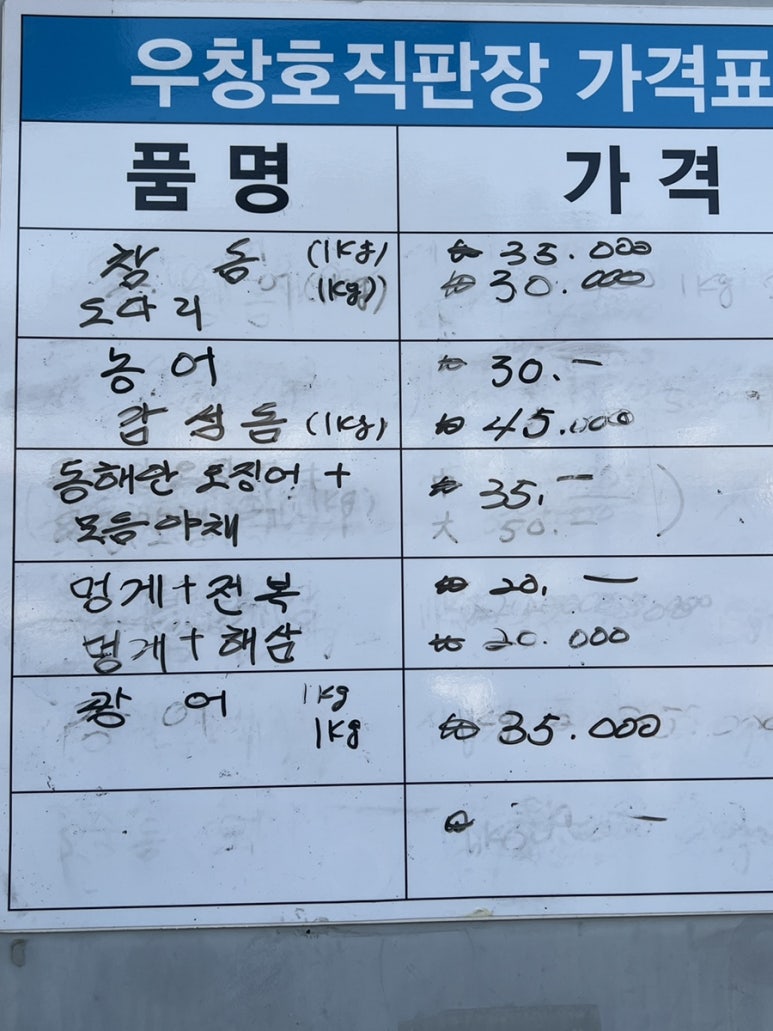 우창호직판장 가격표
품명 가격
참 돔 (1kg) ₩ 35.000
도다리 (1kg) ₩ 30.000
농어 ₩ 30.—
감성돔 (1kg) ₩ 45.000
동해안 오징어 + ₩ 35.—
모듬야채 大 50.—
멍게+전복 ₩ 20.—
멍게+해삼 ₩ 20.000
광어 1kg
1kg ₩ 35.000
₩ —